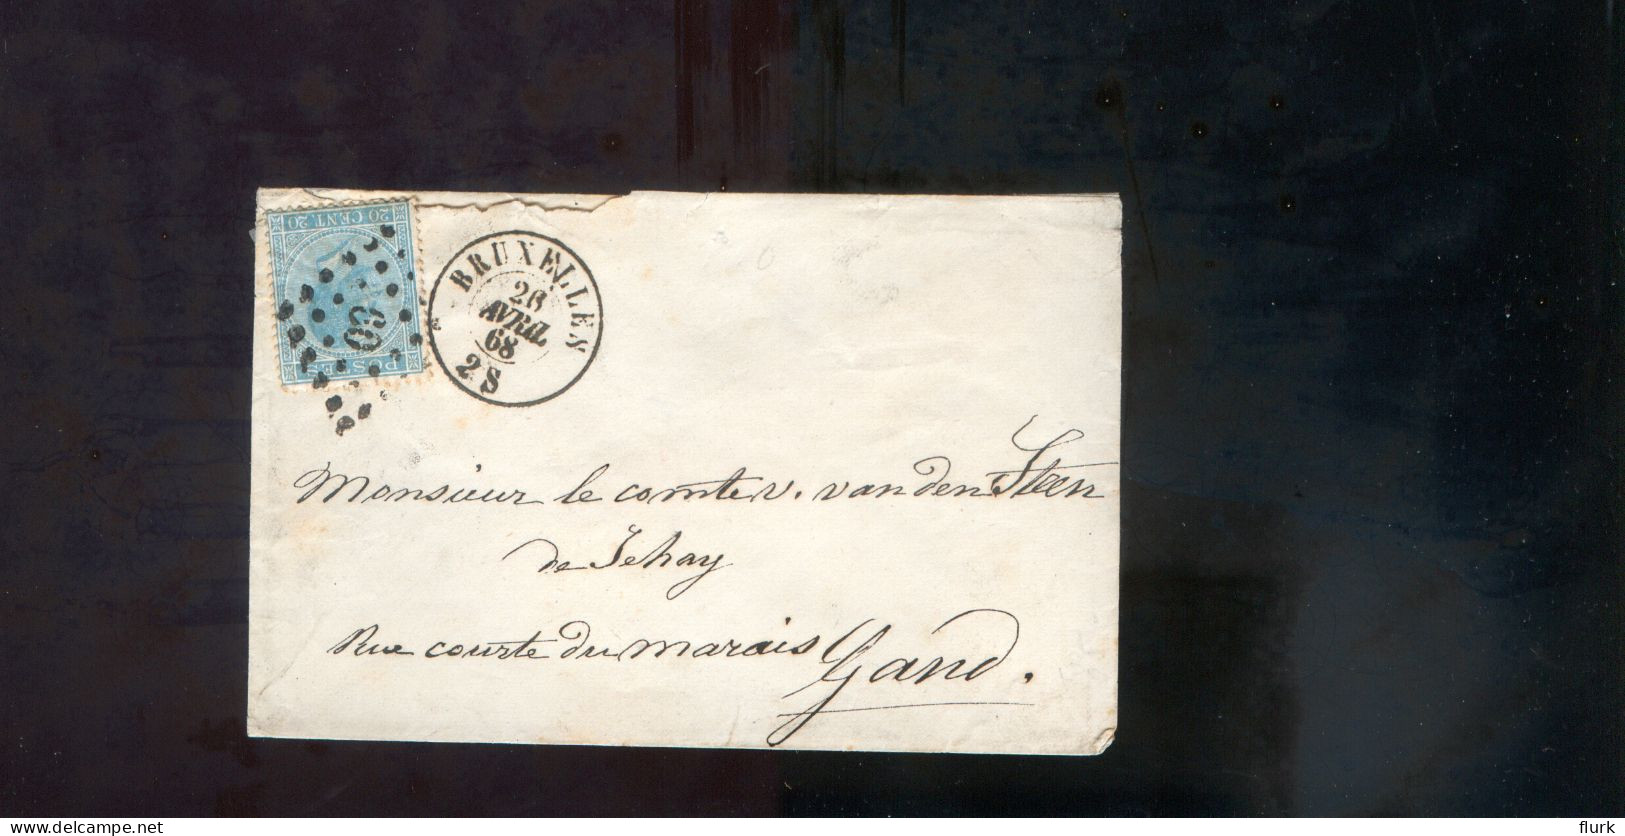 20 CENT. 20
POSTES
60
BRUXELLES
26
AVRIL
68
2 S
Monsieur le comte v. van den Steen
de Jehay
Rue courte du marais
Gand.
delcampe.net
flurk